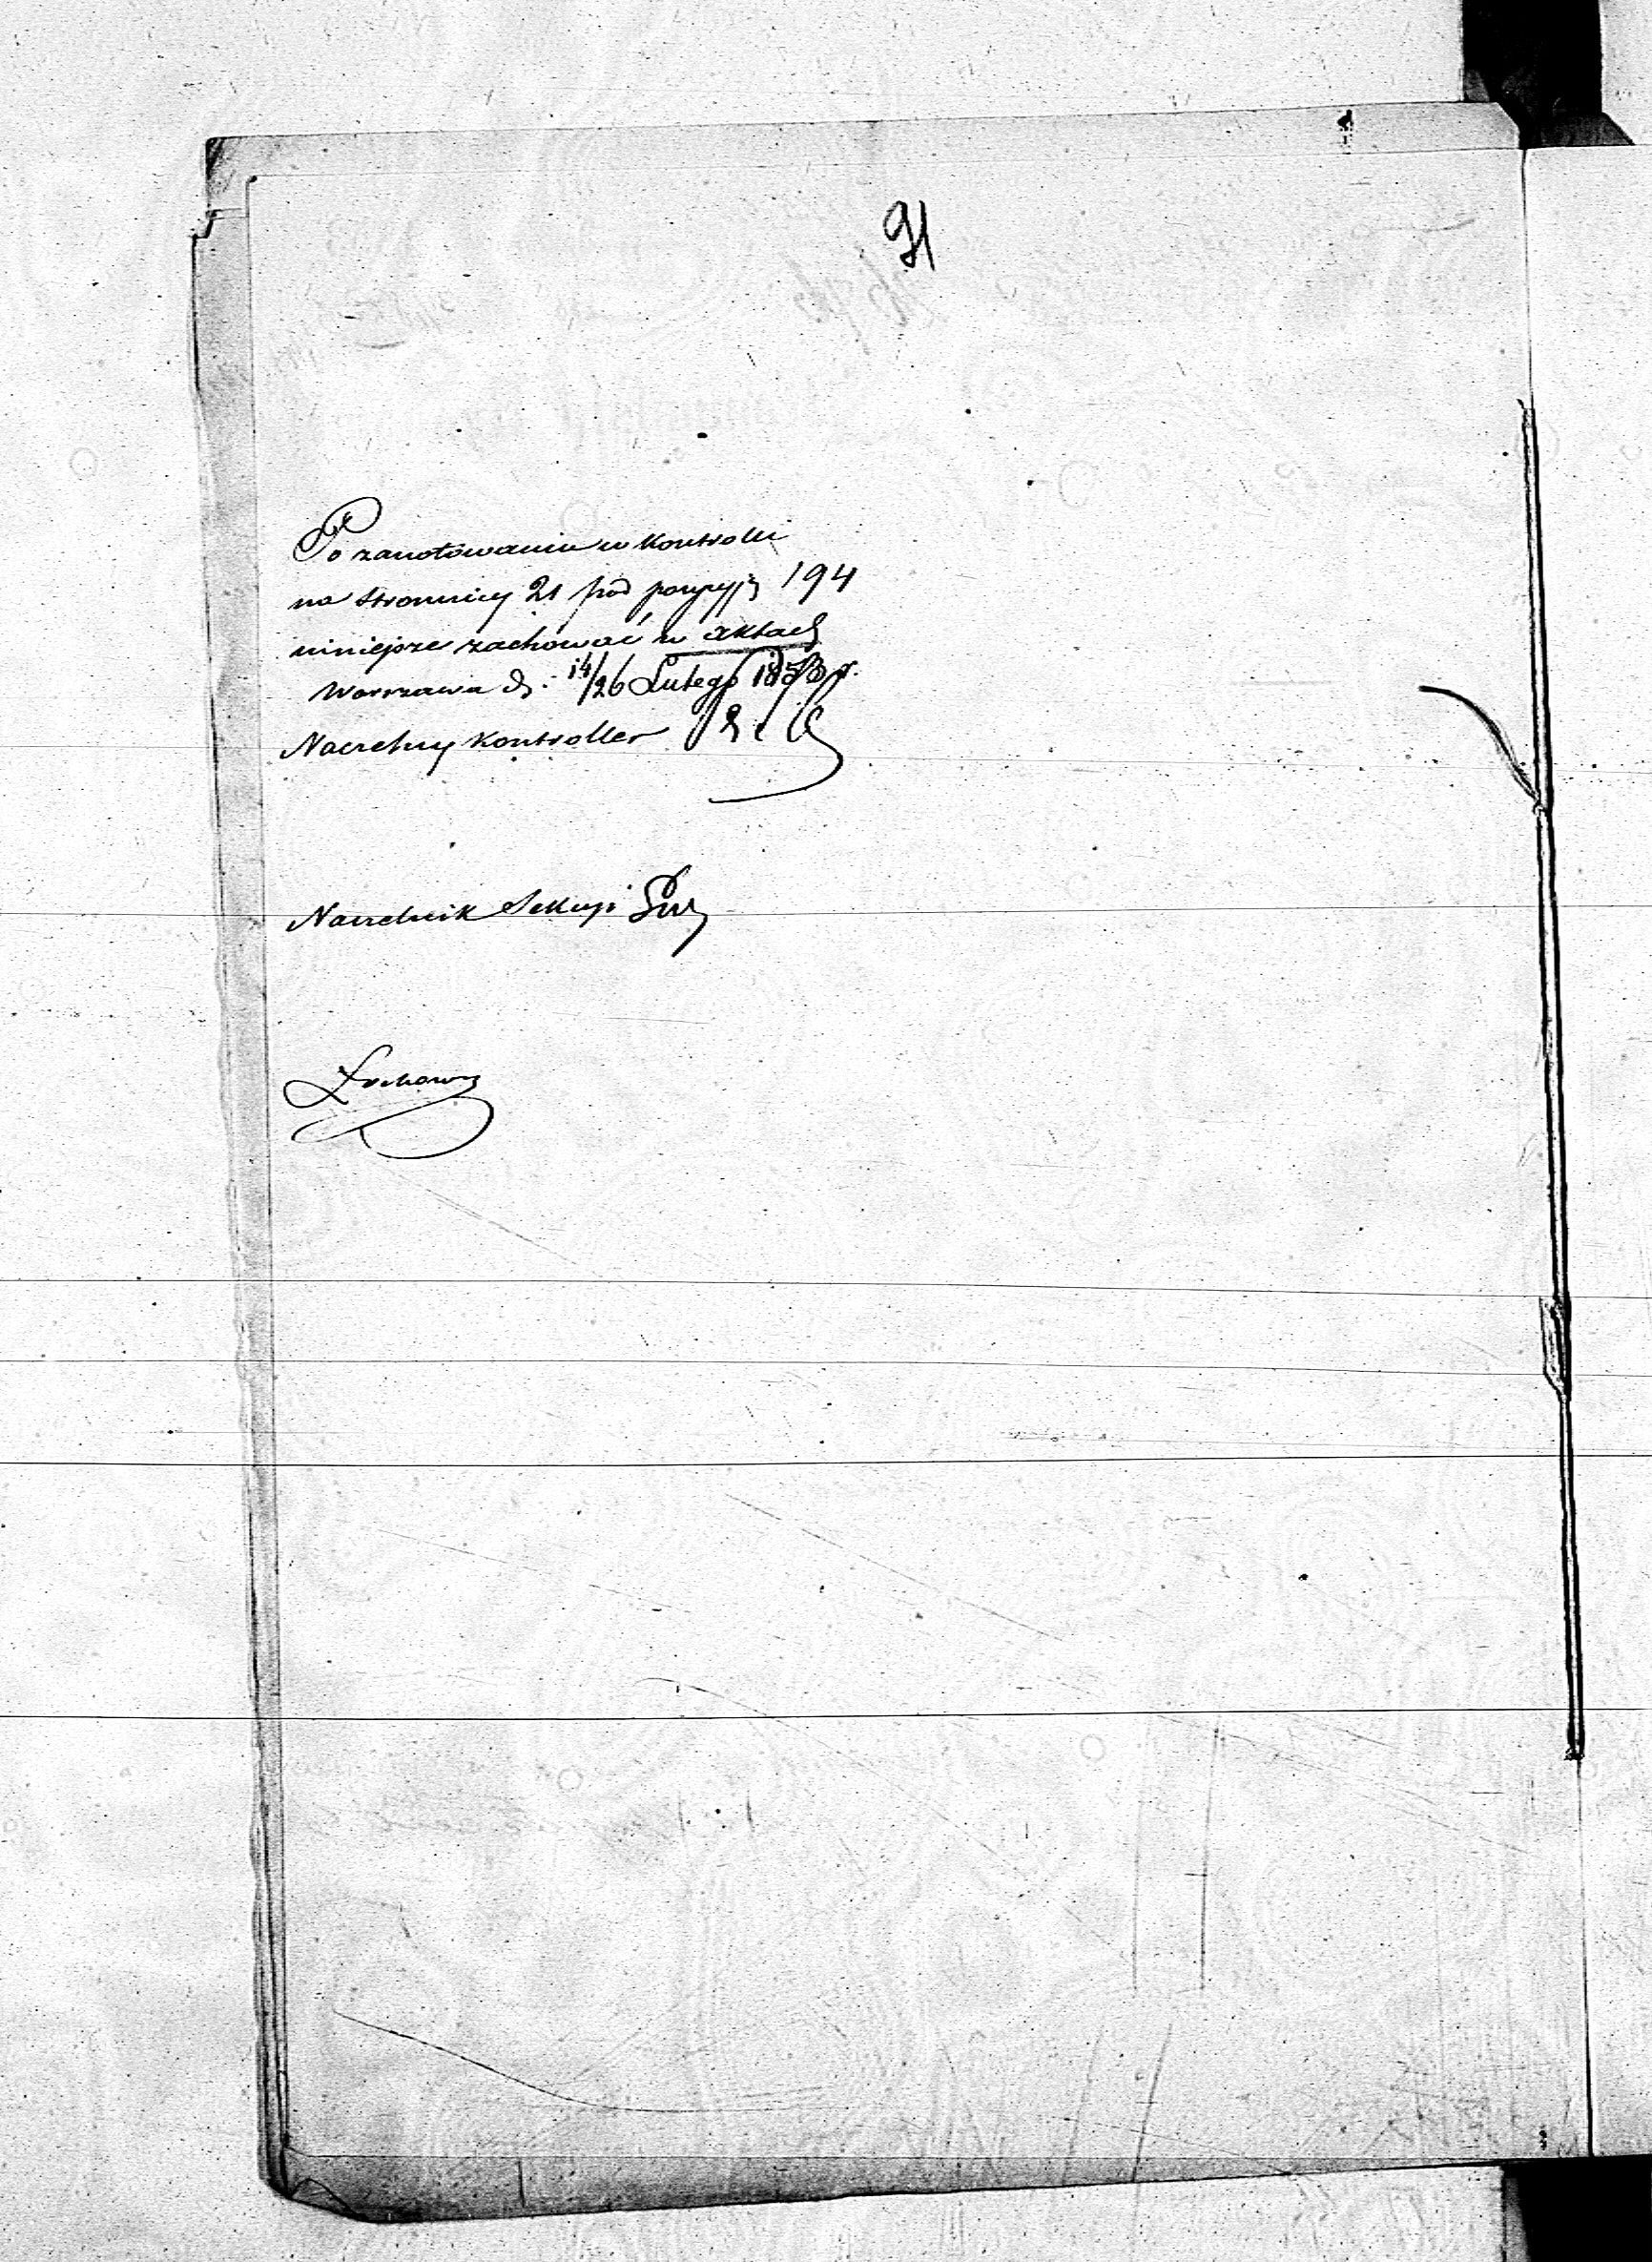 91
Po zanotowaniu w Kontrolli
na stronnicy 21 pod pozycyją 194
niniejsze zachować w aktach
Warszawa d. 14/26 Lutego 1853 r.
Naczelny Kontroller
Naczelnik Sekcyi